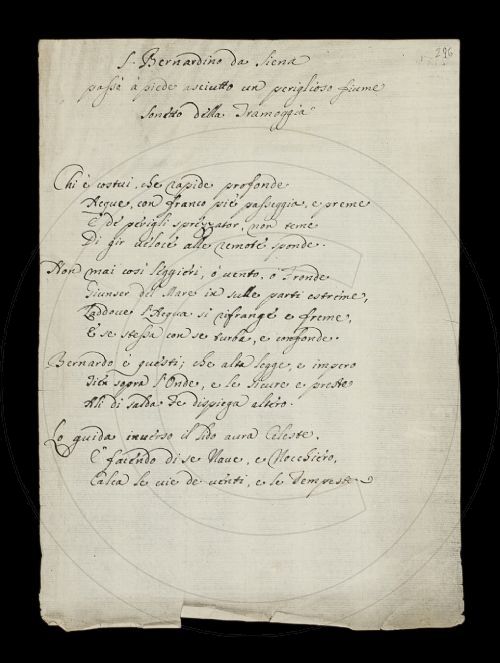 296
S. Bernardino da Siena
passò à piede asciutto un periglioso fiume
Sonetto della Tramoggia
Chi è costui, che rapide profonde
Acque, con franco piè passeggia, e preme
E de perigli sprezzator, non teme
Di gir veloce alle remote sponde.
Non mai così leggieri, ò vento, ò Fronde
Giunser del Mare in sulle parti estreme,
Laddove l'Acqua si rifrange e freme,
E se stessa con se turba, e confonde.
Bernardo è questi; che alta legge, e impero
Tien sopra l'Onde, e le sicure e preste
Ali di salda Fe dispiega altero.
Lo guida inverso il lido aura Celeste,
E facendo di se Nave, e Nocchiero,
Calca le vie de venti, e le Tempeste